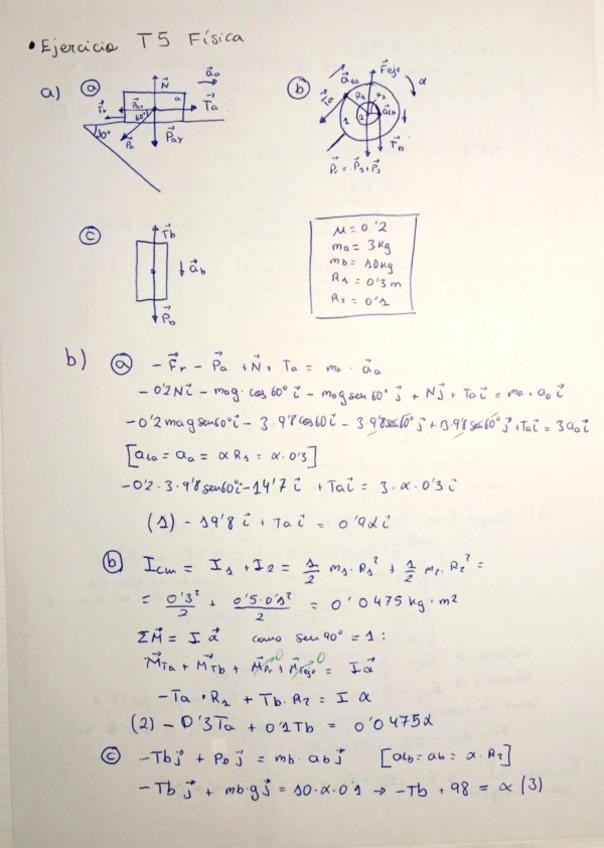 • Ejercicio T5 Física
a) ⓐ N⃗ a⃗a
F⃗r P⃗ax 60° a T⃗a
30° P⃗a P⃗ay
ⓑ a⃗ta F⃗eje α
T⃗a R1 R2 a⃗tb
1 2
T⃗b
P⃗r = P⃗1 + P⃗2
ⓒ T⃗b
a⃗b
P⃗b
μ = 0'2
ma = 3kg
mb = 10kg
R1 = 0'3 m
R2 = 0'1
b) ⓐ - F⃗r - P⃗a + N⃗ + Ta = ma · a⃗a
- 0'2 N i⃗ - mag · cos 60° i⃗ - mag sen 60° j⃗ + N j⃗ + Ta i⃗ = ma · aa i⃗
- 0'2 mag sen60° i⃗ - 3 · 9'8 cos60 i⃗ - 3 · 9'8 sen60° j⃗ + 3 · 9'8 sen60° j⃗ + Ta i⃗ = 3 aa i⃗
[ata = aa = α R1 = α · 0'3]
- 0'2 · 3 · 9'8 sen60 i⃗ - 14'7 i⃗ + Ta i⃗ = 3 · α · 0'3 i⃗
(1) - 19'8 i⃗ + Ta i⃗ = 0'9α i⃗
ⓑ Icm = I1 + I2 = 1/2 m1 · R1² + 1/2 m2 · R2² =
= 0'3²/2 + 0'5 · 0'1²/2 = 0'0475 kg · m²
ΣM⃗ = I α⃗ como sen 90° = 1 :
M⃗Ta + M⃗Tb + M⃗Pr 0 + M⃗Feje 0 = I α⃗
- Ta · R1 + Tb · R2 = I α
(2) - 0'3Ta + 0'1Tb = 0'0475α
ⓒ - Tb j⃗ + Pb j⃗ = mb · ab j⃗ [atb = ab = α · R2]
- Tb j⃗ + mb · g j⃗ = 10 · α · 0'1 → - Tb + 98 = α (3)